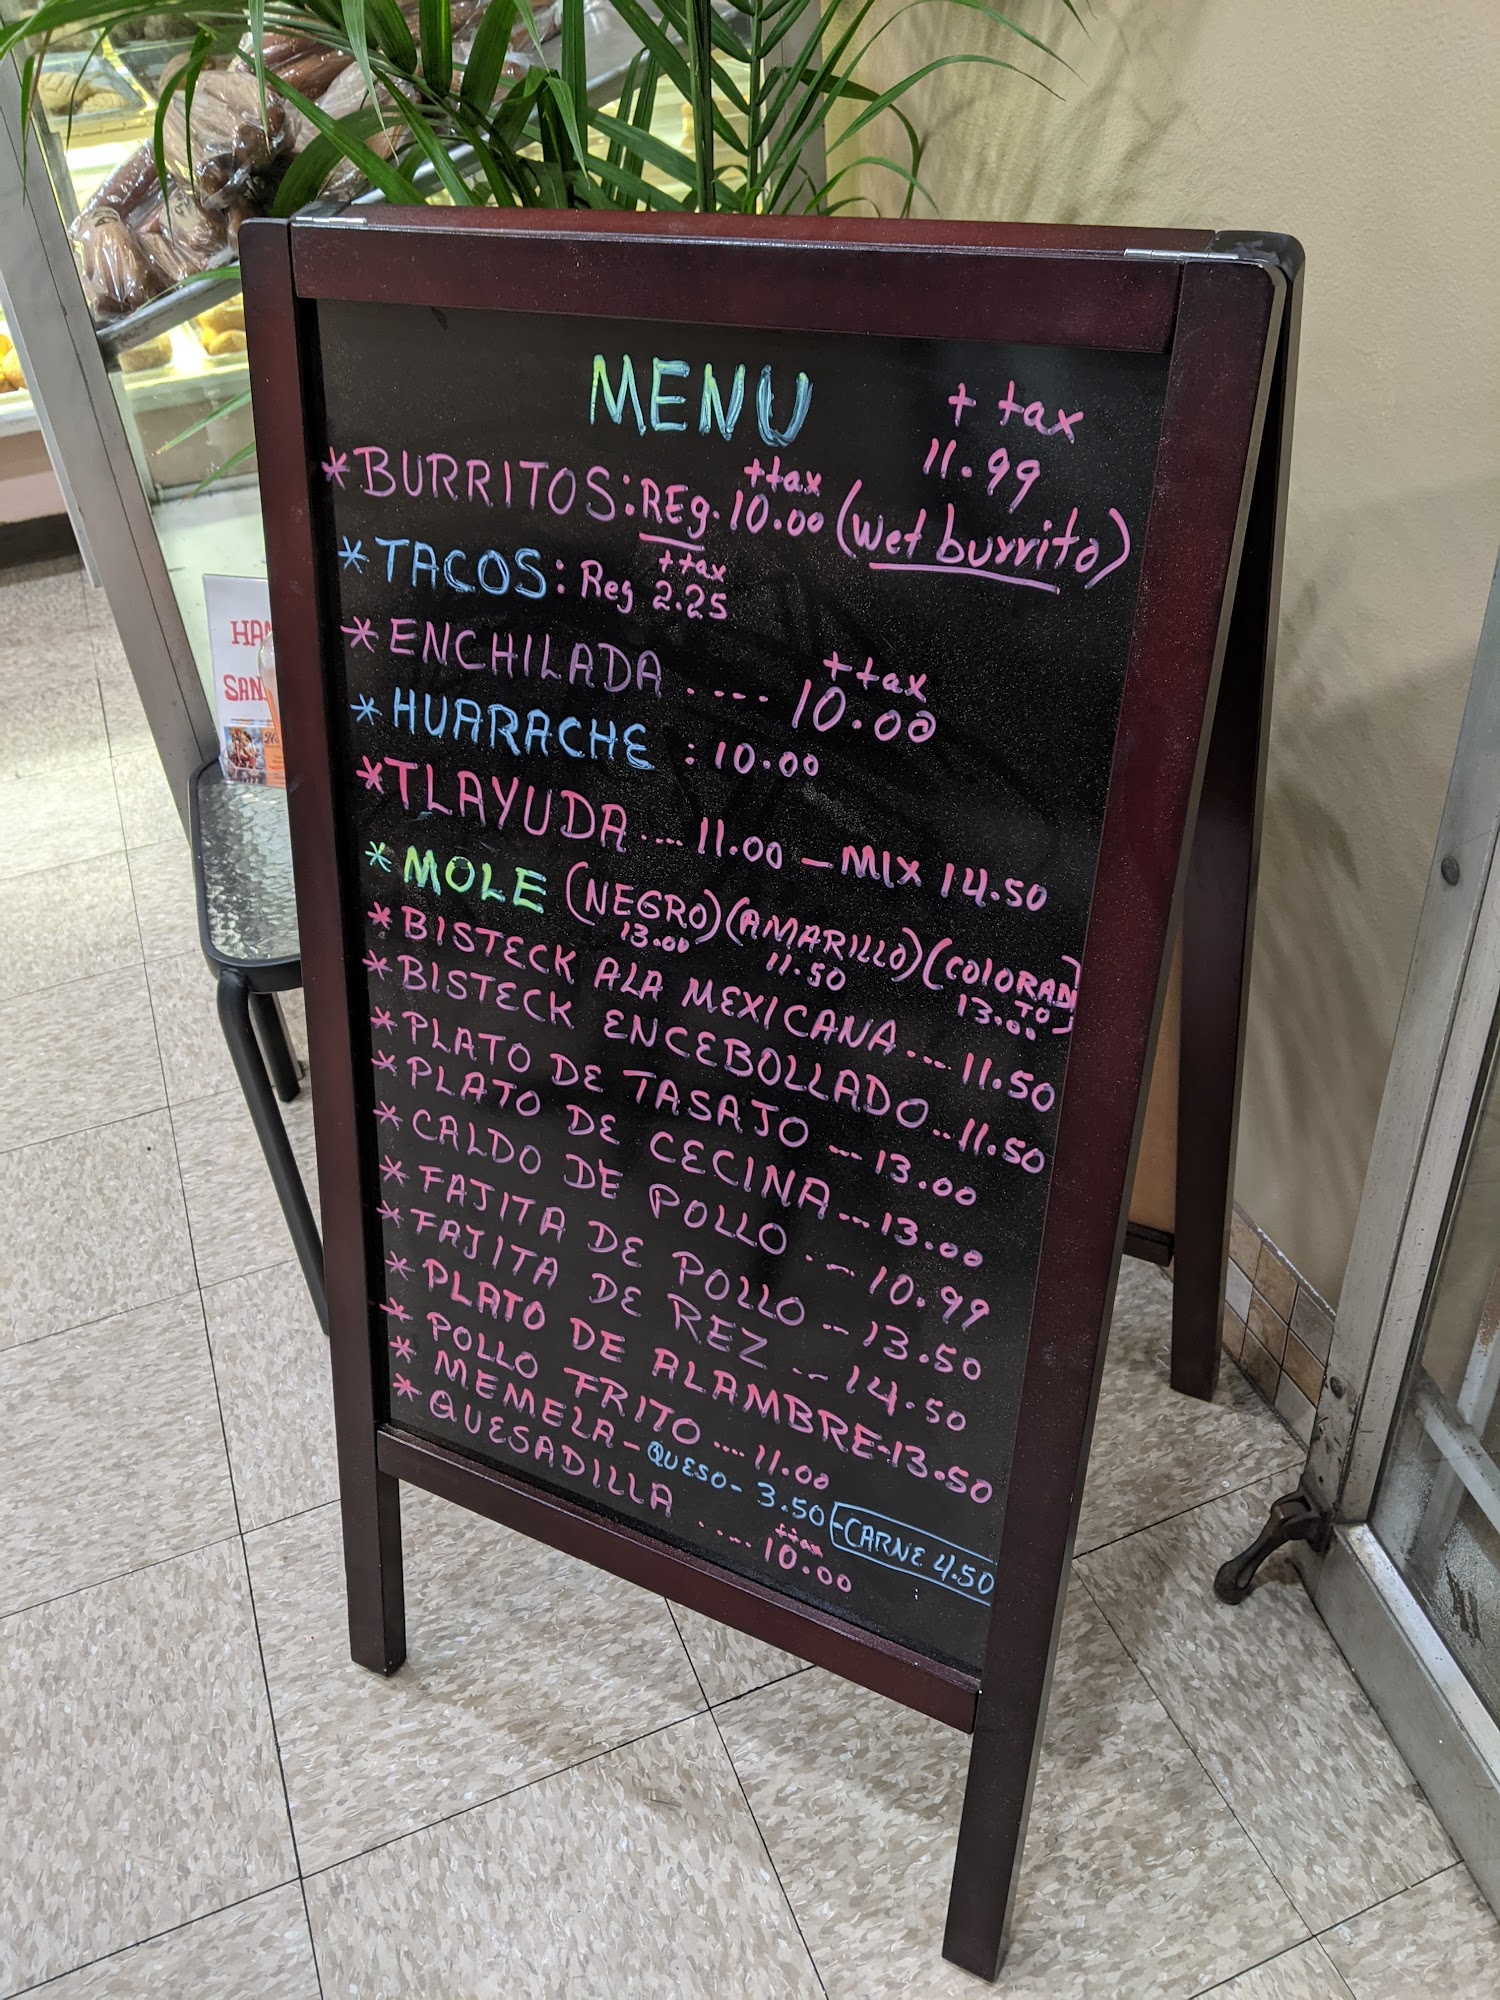 MENU
+ tax
11.99
+tax
*BURRITOS: REg. 10.00 (wet burrito)
+tax
*TACOS: Reg 2.25
+tax
*ENCHILADA .... 10.00
*HUARACHE : 10.00
*TLAYUDA .... 11.00 - MIX 14.50
*MOLE (NEGRO) (AMARILLO) (COlORADTO)
13.00 11.50 13.00
*BISTECK ALA MEXICANA .... 11.50
*BISTECK ENCEBOLLADO .. 11.50
*PLATO DE TASAJO --- 13.00
*PLATO DE CECINA --- 13.00
*CALDO DE POLLO . -- 10.99
*FAJITA DE POLLO -- 13.50
*FAJITA DE REZ -- 14.50
*PLATO DE ALAMBRE-13.50
*POLLO FRITO .... 11.00
*MEMELA - QUESO - 3.50 -CARNE 4.50
+tax
*QUESADILLA .... 10.00
HAN
SAN